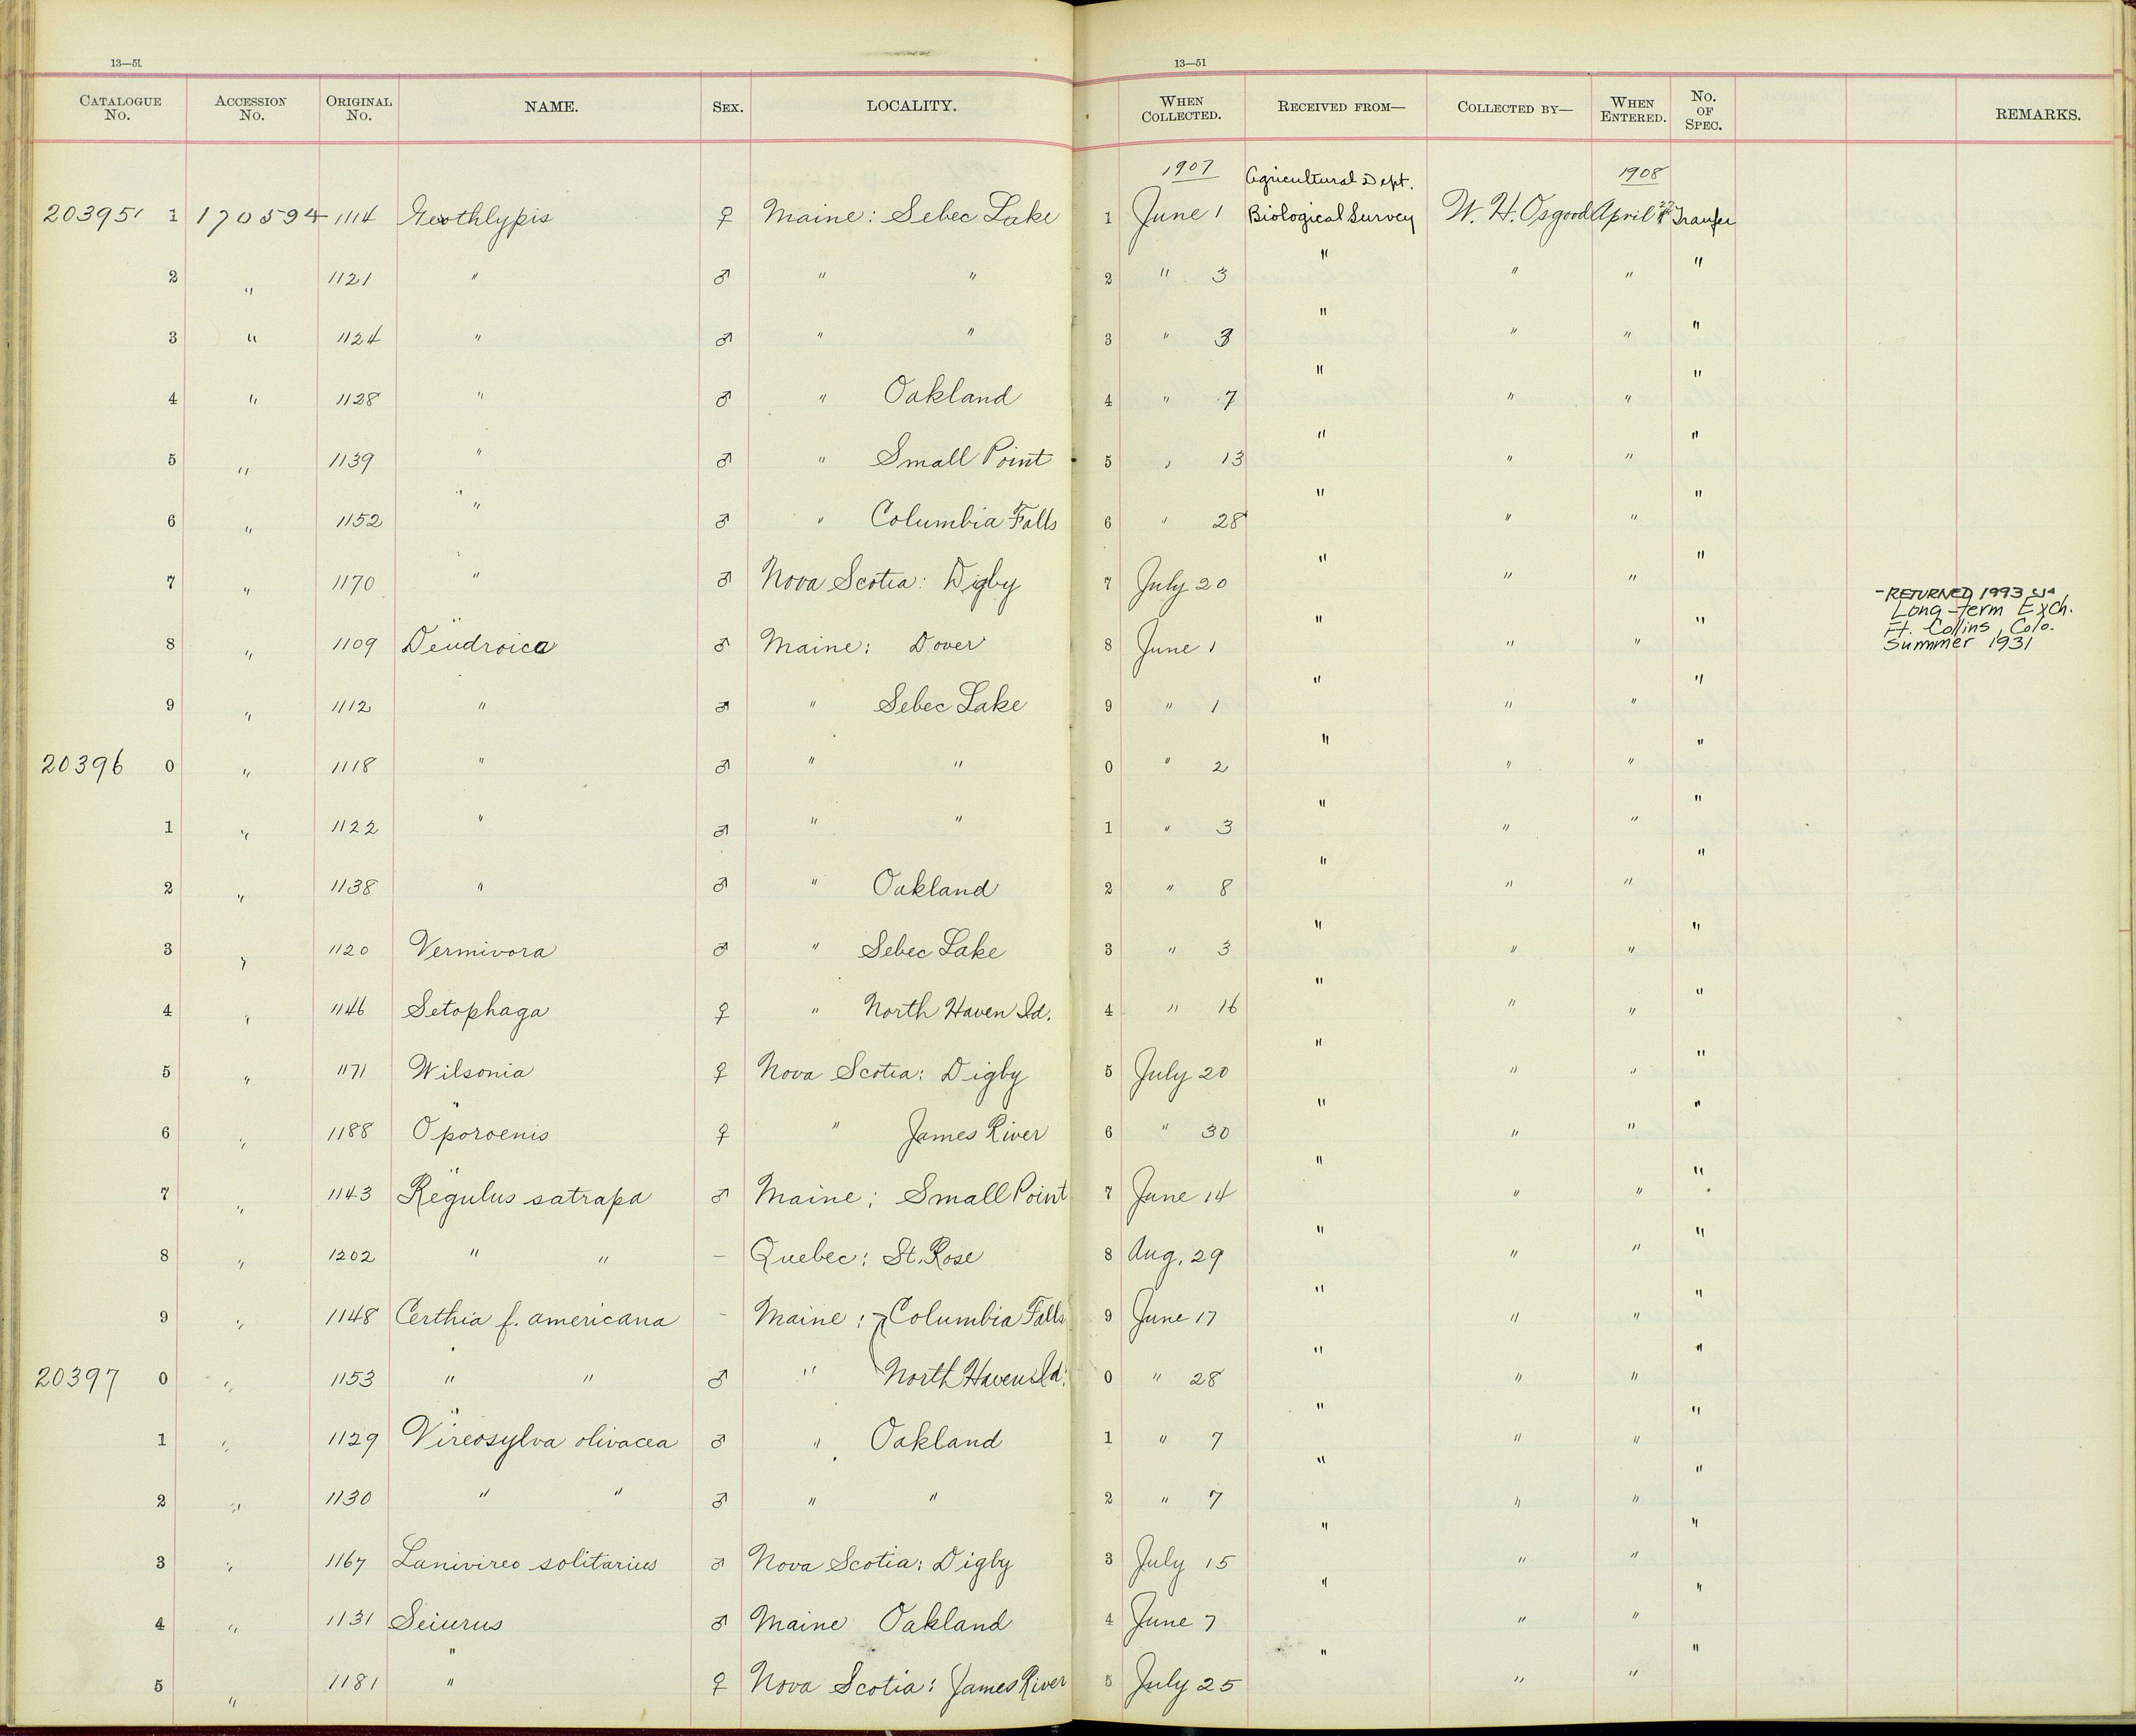 13—51 13—51
CATALOGUE No. ACCESSION No. ORIGINAL No. NAME. SEX. LOCALITY. WHEN COLLECTED. RECEIVED FROM— COLLECTED BY— WHEN ENTERED. No. OF SPEC. REMARKS.
1907 Agricultural Dept. 1908
203951 1 170594 1114 Geothlypis ♀ Maine: Sebec Lake 1 June 1 Biological Survey W. H. Osgood April Transfer
2 " 1121 " ♂ " " 2 " 3 " " " "
3 " 1124 " ♂ " " 3 " 3 " " " "
4 " 1128 " ♂ " Oakland 4 " 7 " " " "
5 " 1139 " ♂ " Small Point 5 " 13 " " " "
6 " 1152 " ♂ " Columbia Falls 6 " 28 " " " "
7 " 1170 " ♂ Nova Scotia: Digby 7 July 20 " " " "
8 " 1109 Dendroica ♂ Maine: Dover 8 June 1 " " " " - RETURNED 1993
Long-term Exch.
Ft. Collins, Colo.
Summer 1931
9 " 1112 " ♂ " Sebec Lake 9 " 1 " " " "
20396 0 " 1118 " ♂ " " 0 " 2 " " " "
1 " 1122 " ♂ " " 1 " 3 " " " "
2 " 1138 " ♂ " Oakland 2 " 8 " " " "
3 " 1120 Vermivora ♂ " Sebec Lake 3 " 3 " " " "
4 " 1146 Setophaga ♀ " North Haven Id. 4 " 16 " " " "
5 " 1171 Wilsonia ♀ Nova Scotia: Digby 5 July 20 " " " "
6 " 1188 Oporoenis ♀ " James River 6 " 30 " " " "
7 " 1143 Regulus satrapa ♂ Maine: Small Point 7 June 14 " " " "
8 " 1202 " " – Quebec: St. Rose 8 Aug. 29 " " " "
9 " 1148 Certhia f. americana – Maine: Columbia Falls 9 June 17 " " " "
20397 0 " 1153 " " ♂ " North Haven Id. 0 " 28 " " " "
1 " 1129 Vireosylva olivacea ♂ " Oakland 1 " 7 " " " "
2 " 1130 " " ♂ " " 2 " 7 " " " "
3 " 1167 Lanivireo solitarius ♂ Nova Scotia: Digby 3 July 15 " " " "
4 " 1131 Seiurus ♂ Maine Oakland 4 June 7 " " " "
5 " 1181 " ♀ Nova Scotia: James River 5 July 25 " " " "